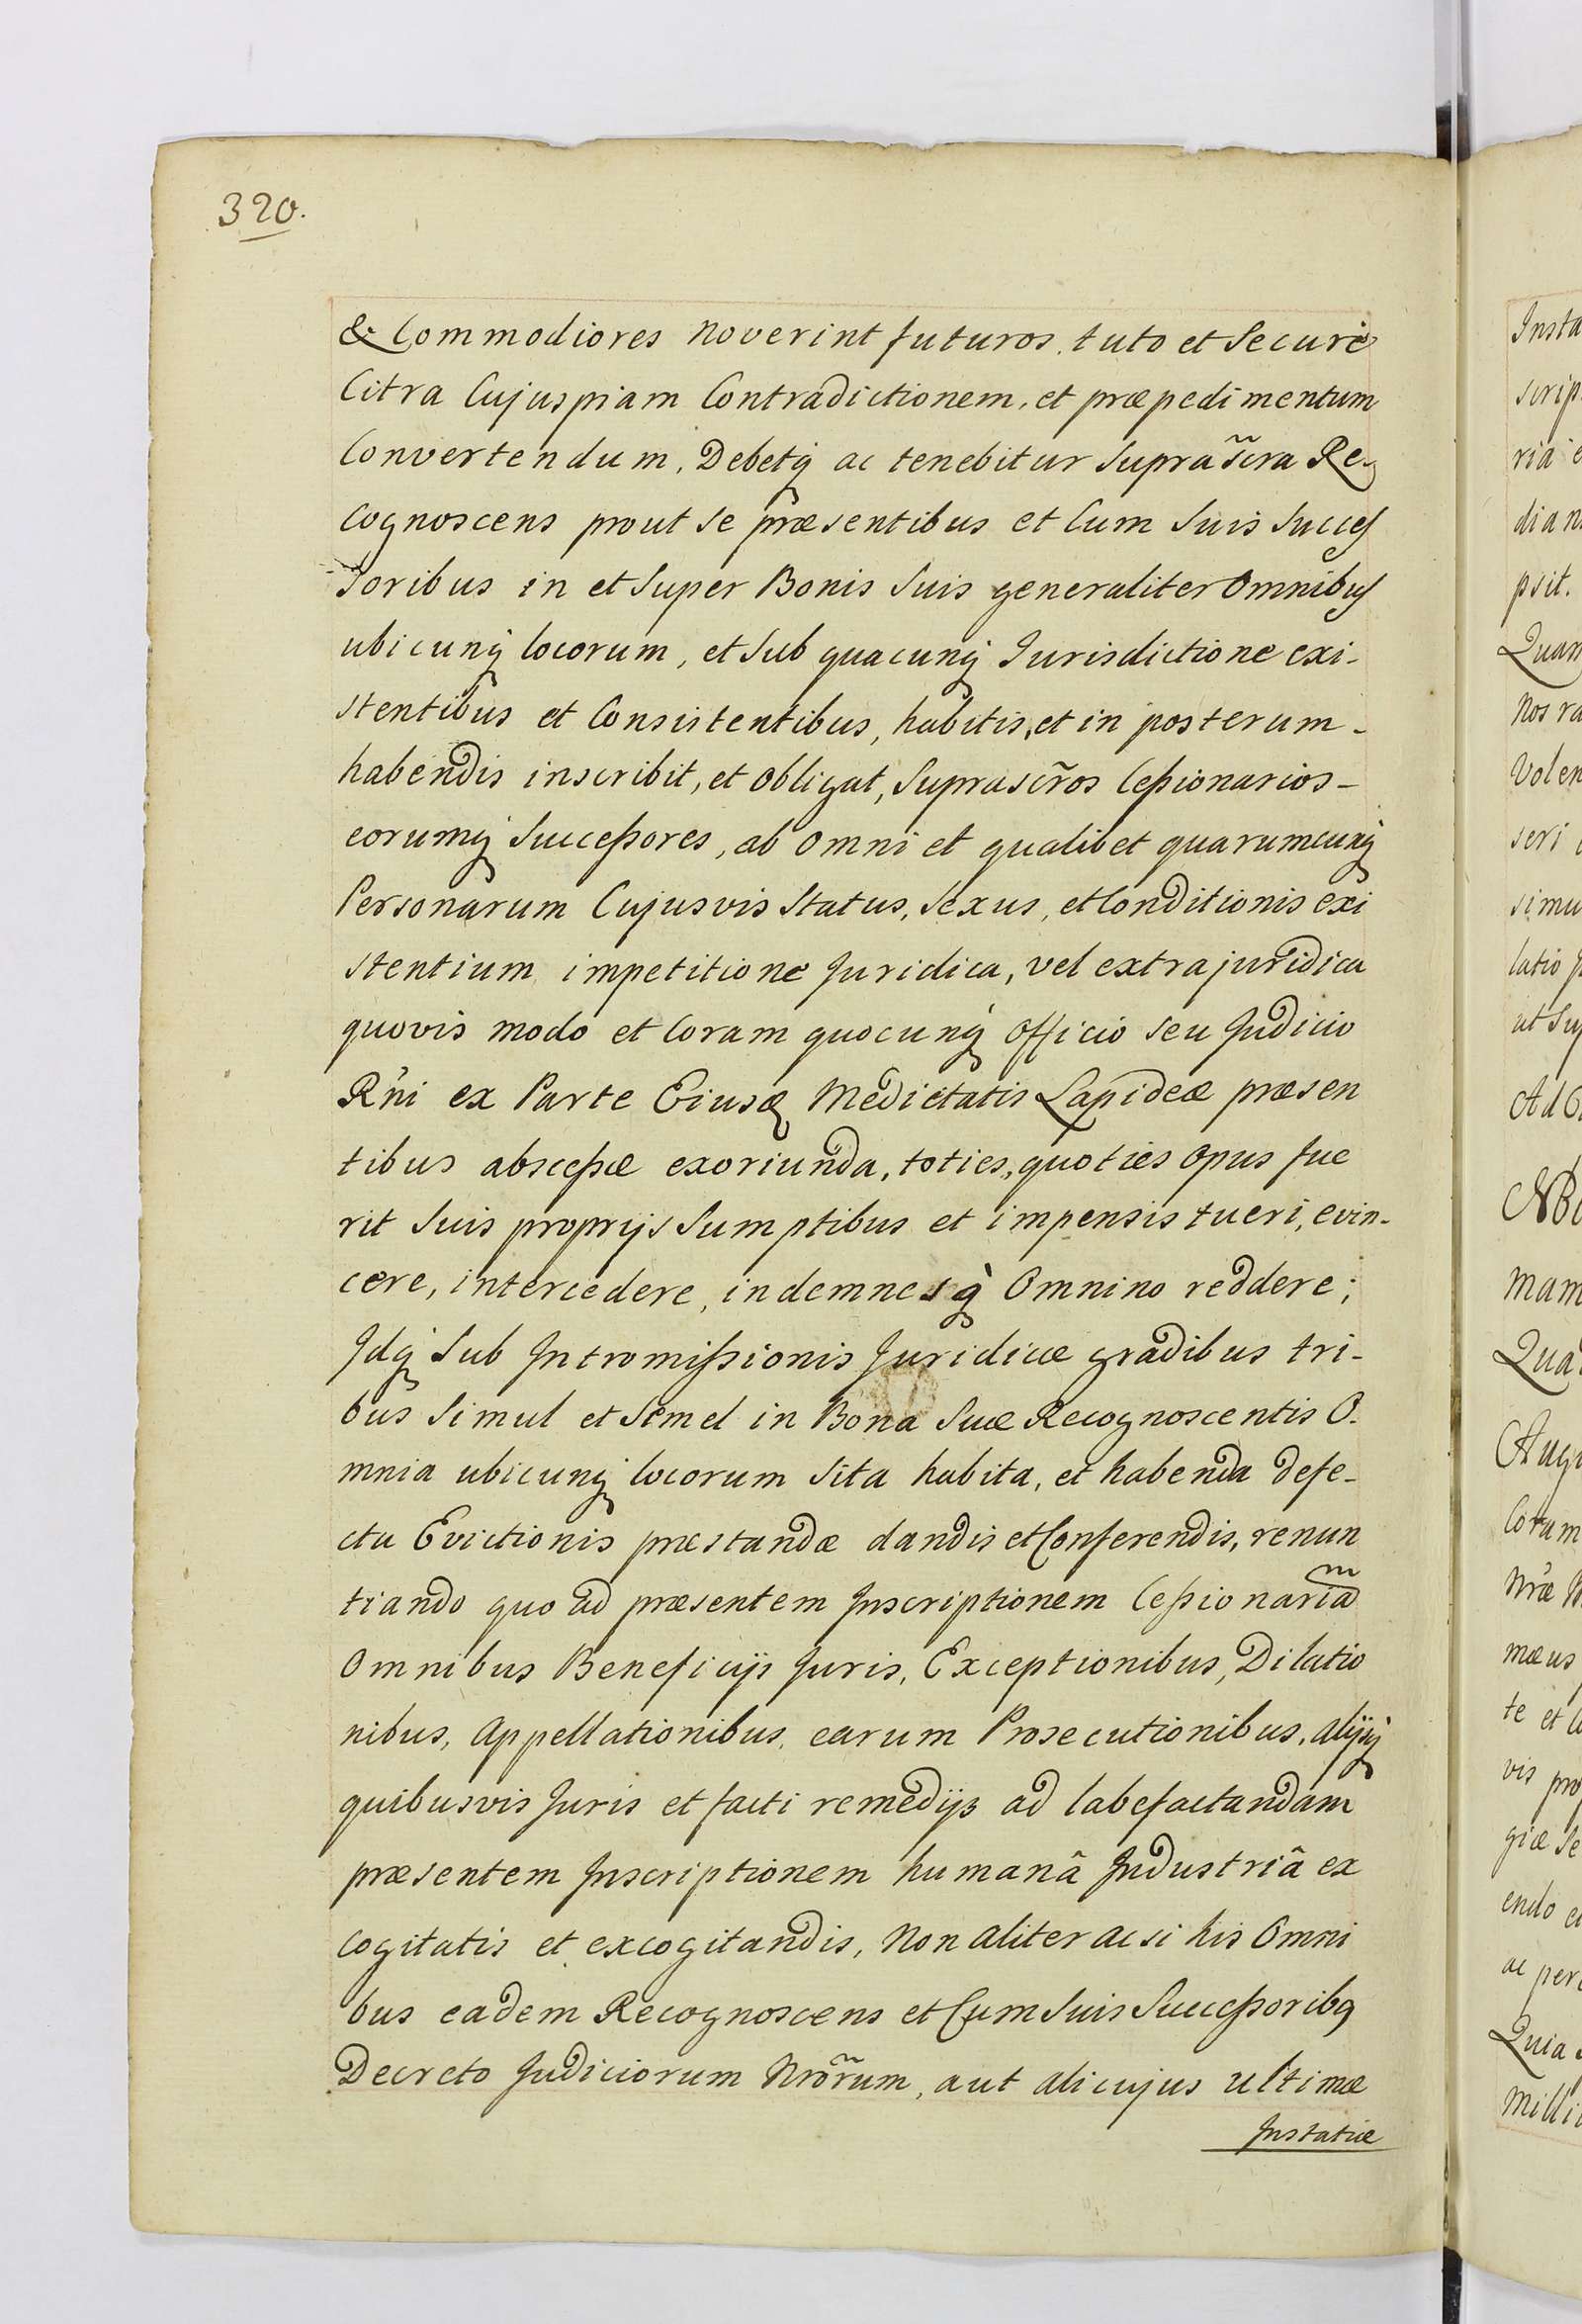 320.
& Commodiores noverint futuros, tuto et Securè
Citra Cujuspiam Contradictionem, et præpedimentum
Convertendum, Debetq̃ ac tenebitur Supras̃cra Re-
cognoscens prout se præsentibus et Cum Suis Succes
soribus in et Super Bonis Suis generaliter Omnibus
ubicunq̃ locorum, et Sub quacunq̃ Jurisdictione exi-
stentibus et Consistentibus, habitis, et in posterum -
habendis inscribit, et obligat, Suprascr̃os Cessionarios -
eorumq̃ Successores, ab omni et qualibet quarumcunq̃
Personarum Cujusvis Status, Sexus, et Conditionis exi
stentium impetitione Juridica, vel extrajuridica
quovis modo et Coram quocunq̃ Officio seu Judicio
R'ni ex Parte Eiusđ Medietatis Lapideæ præsen
tibus abscessæ exoriunda, toties, quoties opus fue
rit Suis proprijs Sumptibus et impensis tueri, evin-
cere, intercedere, indemnesq̀ Omnino reddere;
Idq̃ Sub Intromissionis Juridicæ gradibus tri-
bus Simul et Semel in Bona Suæ Recognoscentis O-
mnia ubicunq̃ locorum Sita habita, et habenda defe-
ctu Evictionis præstandæ dandis et Conferendis, renun
tiando quo ad præsentem Inscriptionem Cessionariam
Omnibus Beneficijs Juris, Exceptionibus, Dilatio
nibus, Appellationibus, earum Prosecutionibus, alijsq̃
quibusvis Juris et facti remedijs ad labefactandam
præsentem Inscriptionem humanâ Industriâ ex
cogitatis et excogitandis, Non aliter ac si his Omni
bus eadem Recognoscens et Cum Suis Successoribꝯ
Decreto Judiciorum Nrõrum, aut alicujus ultimæ
Instatiæ
Insta
scrip
ria e
dian
psit.
Quam
Nos ra
Volen
seri
simu
latio
ut Su
Ad
mam
Qua
Coram
Nr̃æ
mæus
te et
vis pro
giæ Se
endo
ac per
Quia
Milli